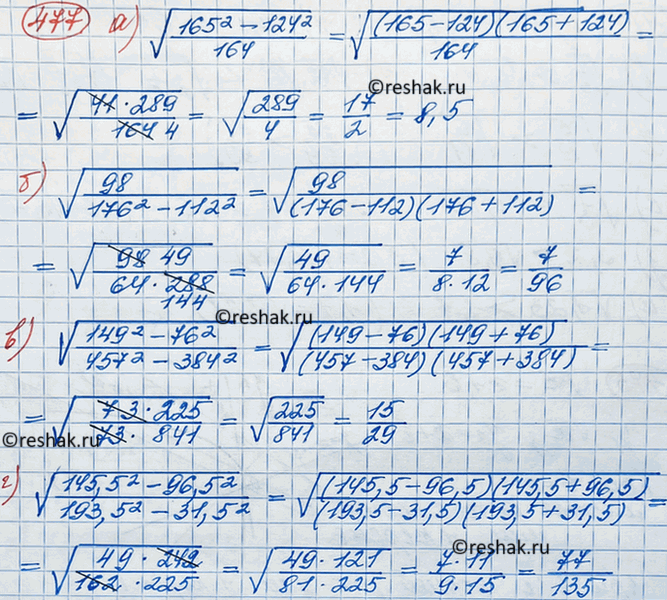 477 а) √((165² − 124²)/164) = √((165−124)(165+124)/164) =
©reshak.ru
= √((41 · 289)/(164 4)) = √(289/4) = 17/2 = 8,5
б) √(98/(176² − 112²)) = √(98/((176−112)(176+112))) =
= √((98 49)/(64 · 288 144)) = √(49/(64 · 144)) = 7/(8 · 12) = 7/96
©reshak.ru
в) √((149² − 76²)/(457² − 384²)) = √((149−76)(149+76)/((457−384)(457+384))) =
= √((73 · 225)/(73 · 841)) = √(225/841) = 15/29
©reshak.ru
г) √((145,5² − 96,5²)/(193,5² − 31,5²)) = √((145,5−96,5)(145,5+96,5)/((193,5−31,5)(193,5+31,5))) =
©reshak.ru
= √((49 · 242)/(162 · 225)) = √((49 · 121)/(81 · 225)) = (7 · 11)/(9 · 15) = 77/135